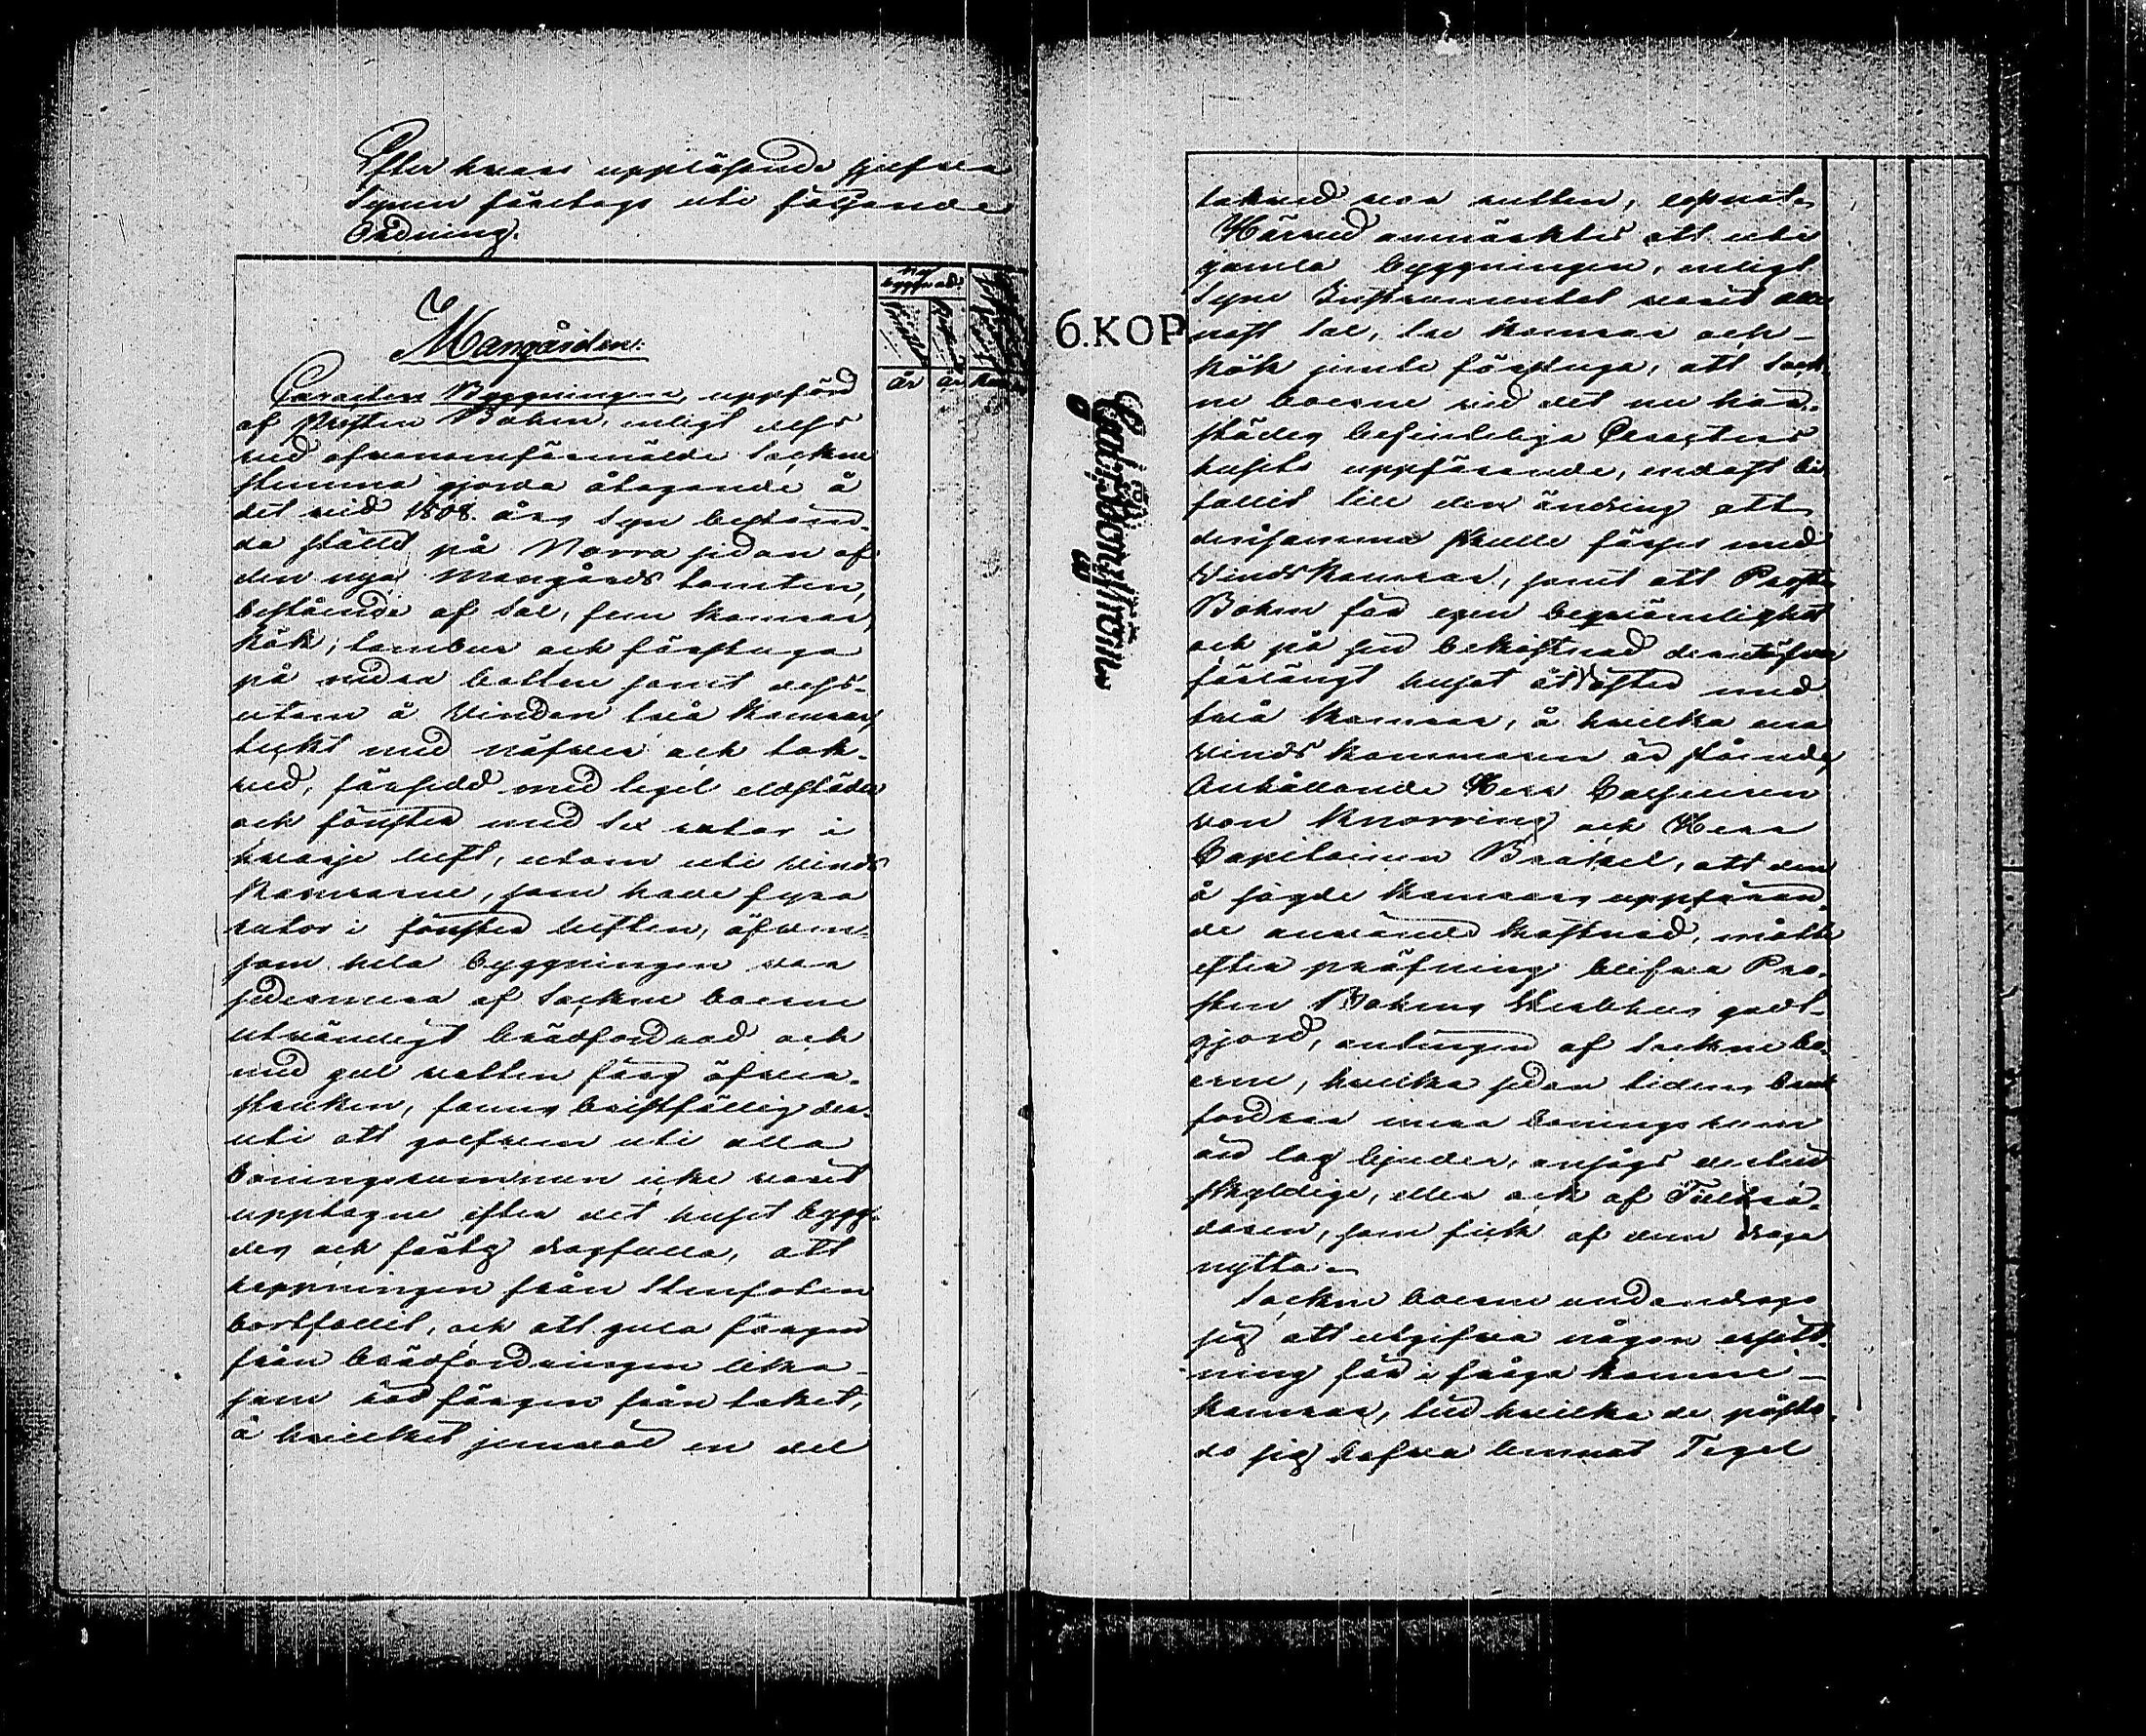 Efter hvars uppläsande sjelfva
Synen företogs uti följande
Ordning.
Mangården.
år år
Caracters Byggningen uppförd
af Prosten Bohm, enligt dess
vid ofvanomförmälde Sockne
stemma gjorda åtagande å
det vid 1808 års Syn bestäm-
da stället på Norra sidan af
den nya Mangårds tomten,
bestående af Sal, fem kamrar,
kök, tambur och förstuga
på nedra botten samt dess-
utom å vinden två kamrar,
täckt med näfver och tak-
ved, försedd med tegel eldstäder
och fönster med sex rutor i
hvarje luft, utom uti vinds
kamrarne, som have fyra
rutor i fönster luften, äfven
som hela byggningen var
sedermera af Sockne boerne
utvändigt brädfordrad och
med gul vatten färg öfver-
struken, fanns bristfällig der-
uti att golfven uti alla
boningsrummen icke varit
upptagne efter det huset bygg-
des och särtz dragfulla, att
rappningen från stenfoten
bortfallit, och att gula färgen
från brädfordringen lika-
som röd färgen från taket,
å hvilket jemväl en del
takved var rutten, lossnat.
Härvid anmärktes att uti
gamla byggningen, enligt
Syne Instrumentet varit alle-
nast Sal, tre kamrar och
kök jemte förstuga, att Sock-
ne boerne vid det nu här-
städes befindeliga Caracters
husets uppförande, endast bi-
fallit till den ändring att
densamma skulle förses med
Vindskamrar, samt att Prosten
Bohm för egen beqvämlighet
och på sin bekostnad derutöfver
förlängt huset åt öster med
två kamrar, å hvilka ena
vindskammaren är stående,
Anhållande Herr
von Knorring och Herr
Capitainen Bräkel, att den
å sagde kamrars uppföran-
de använde kostnad, måtte
efter pröfning blifva Pro-
sten Bohms Sterbhus godt-
gjord, antingen af Sockne bo-
erne, hvilka sedan tidens bruk
fordrar mera bonings rum
än lag bjuder, ansågs dertill
skyldige, eller ock af Tillträ-
daren, som fick af dem draga
nytta.
Sockne boerne undandrogo
sig att utgifva någon ersätt-
ning för i fråga komne
kamrar, till hvilka de påsto-
do sig hafva lemnat Tegel
6.KOP